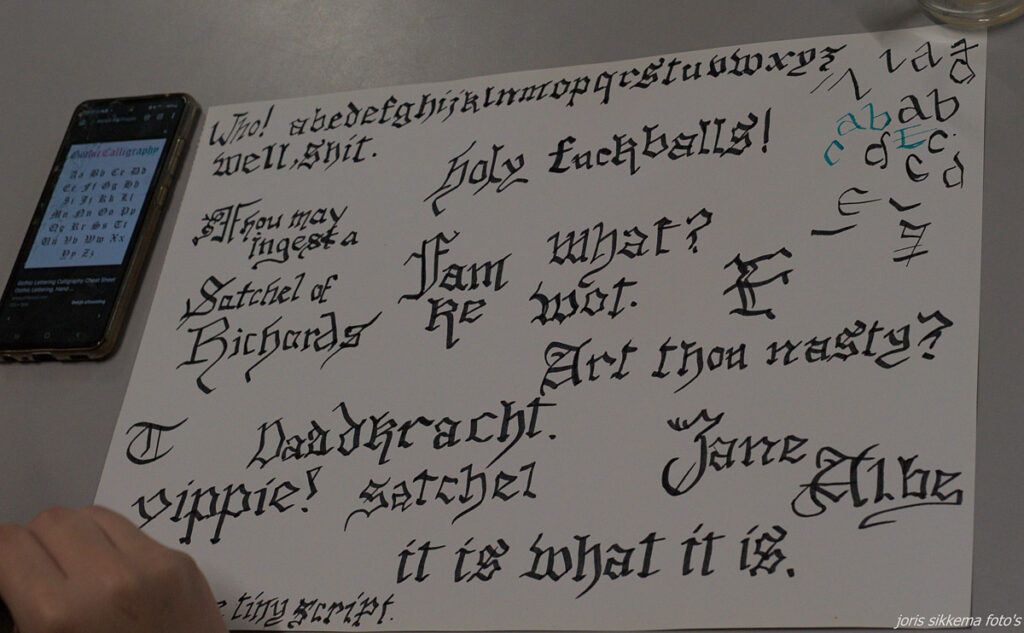 Who! abcdefghijklmnopqrstuvwxyz
well, shit.
holy fuckballs!
a b a b
c d E c
c d
Thou may
ingest a
Satchel of
Richards
Fam
Re
What?
wot.
E
Art thou nasty?
T
Daadkracht.
Jane
Albe
yippie! satchel
it is what it is.
tiny script.
Gothic Calligraphy
Aa Bb Cc Dd
Ee Ff Gg Hh
Ii Jj Kk Ll
Mm Nn Oo Pp
Qq Rr Ss Tt
Uu Vv Ww Xx
Yy Zz
Gothic Lettering Calligraphy Cheat Sheet
Gothic Lettering, Hand ...
joris sikkema foto's